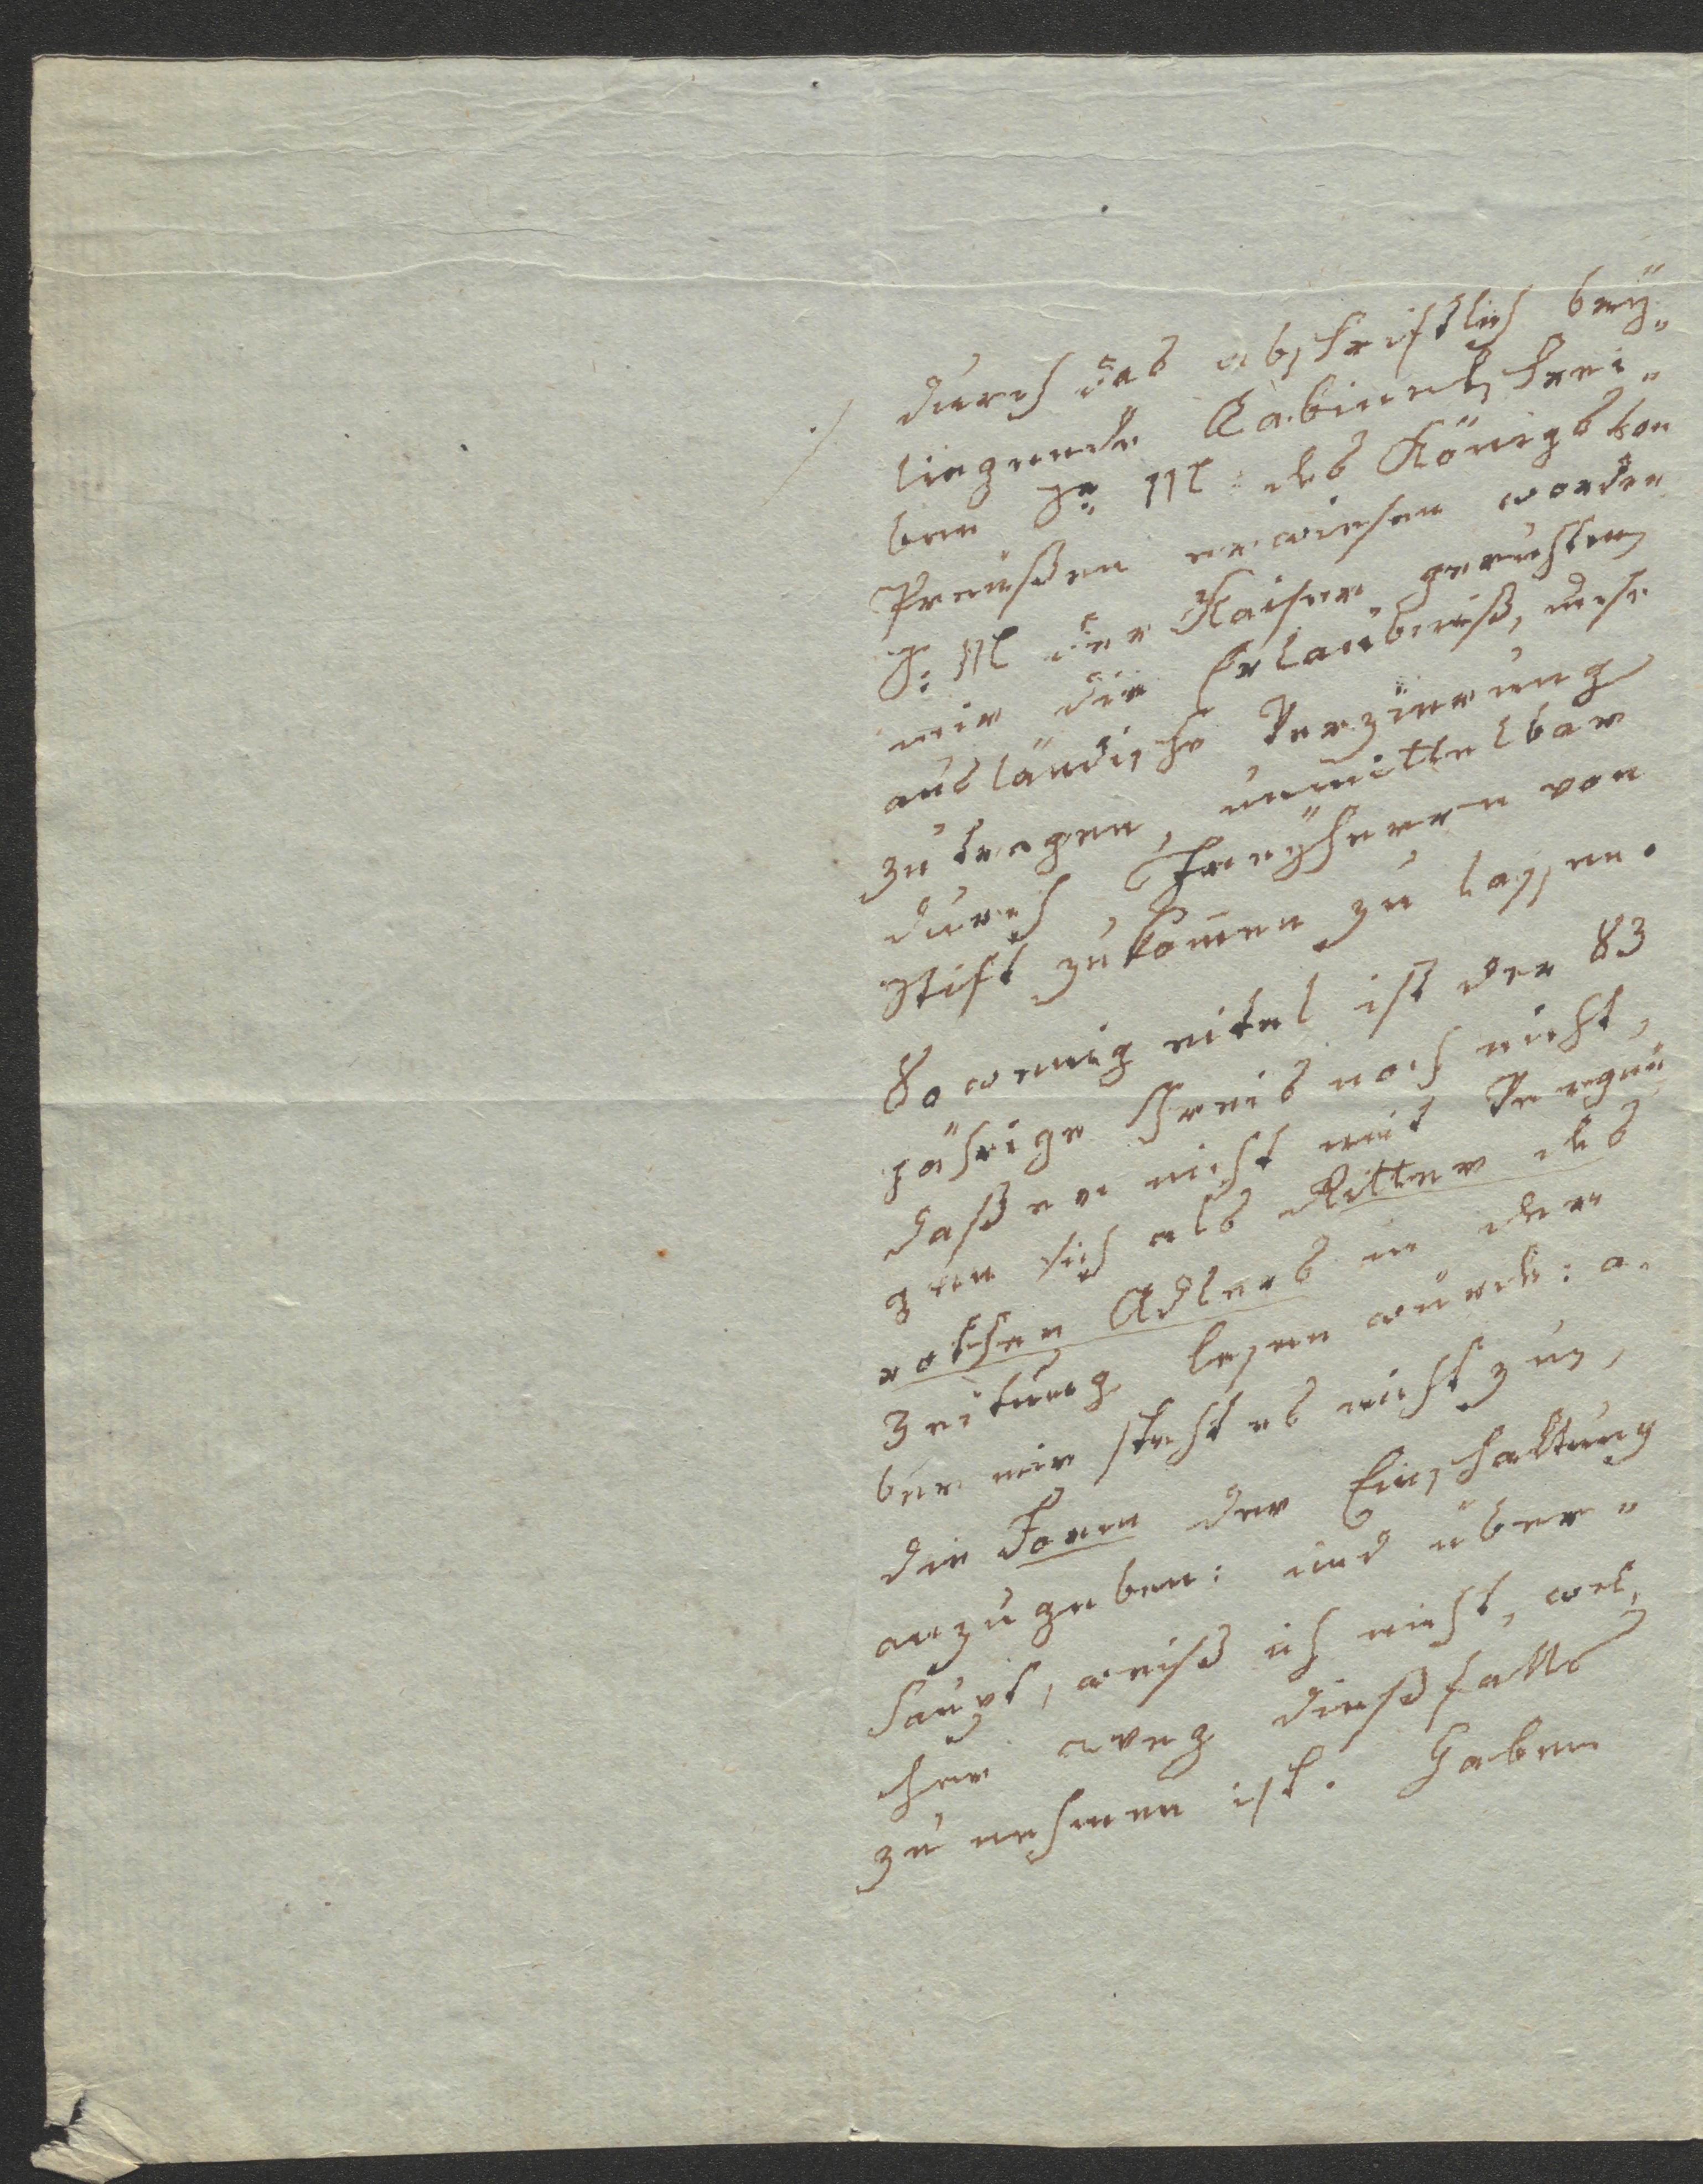 ./. durch das abschriftlich bey„
liegende Cabinetsschrei„
ben Sr M: des Königs von
Preüßen erwiesen worden
S: M der Kaiser geruhten,
mir die Erlaubniß, diese
ausländische Verzierung
zu tragen, unmittelbar
durch Freyherrn von
Stift zukom̄en zu lassen.
So wenig eitel ist der 83
jährige Greis noch nicht,
daß er nicht mit Vergnü
gen sich als Ritter des
rothen Adlers in der
Zeitung lesen würde: a„
ber mir steht es nicht zu,
die Form der Einschaltung
anzugeben: und über„
haupt, weiß ich nicht, wel„
cher Weg dießfalls
zu nehmen ist. Haben